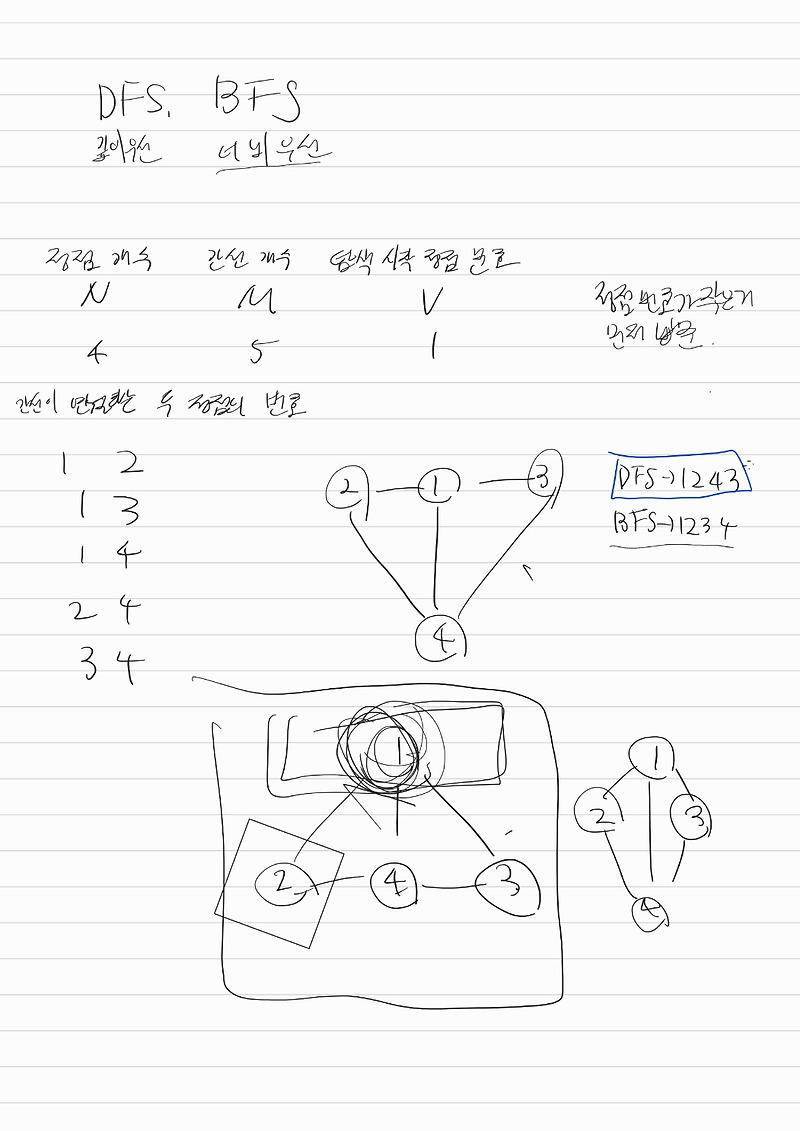 DFS. BFS
깊이우선 너비우선
정점 개수 간선 개수 탐색 시작 정점 번호
N M V
4 5 1
정점 번호가 작은거
먼저 방문.
간선이 연결하는 두 정점의 번호
1 2
1 3
1 4
2 4
3 4
2 1 3
4
DFS→1243
BFS→1234
1
2 4 3
1
2 3
4